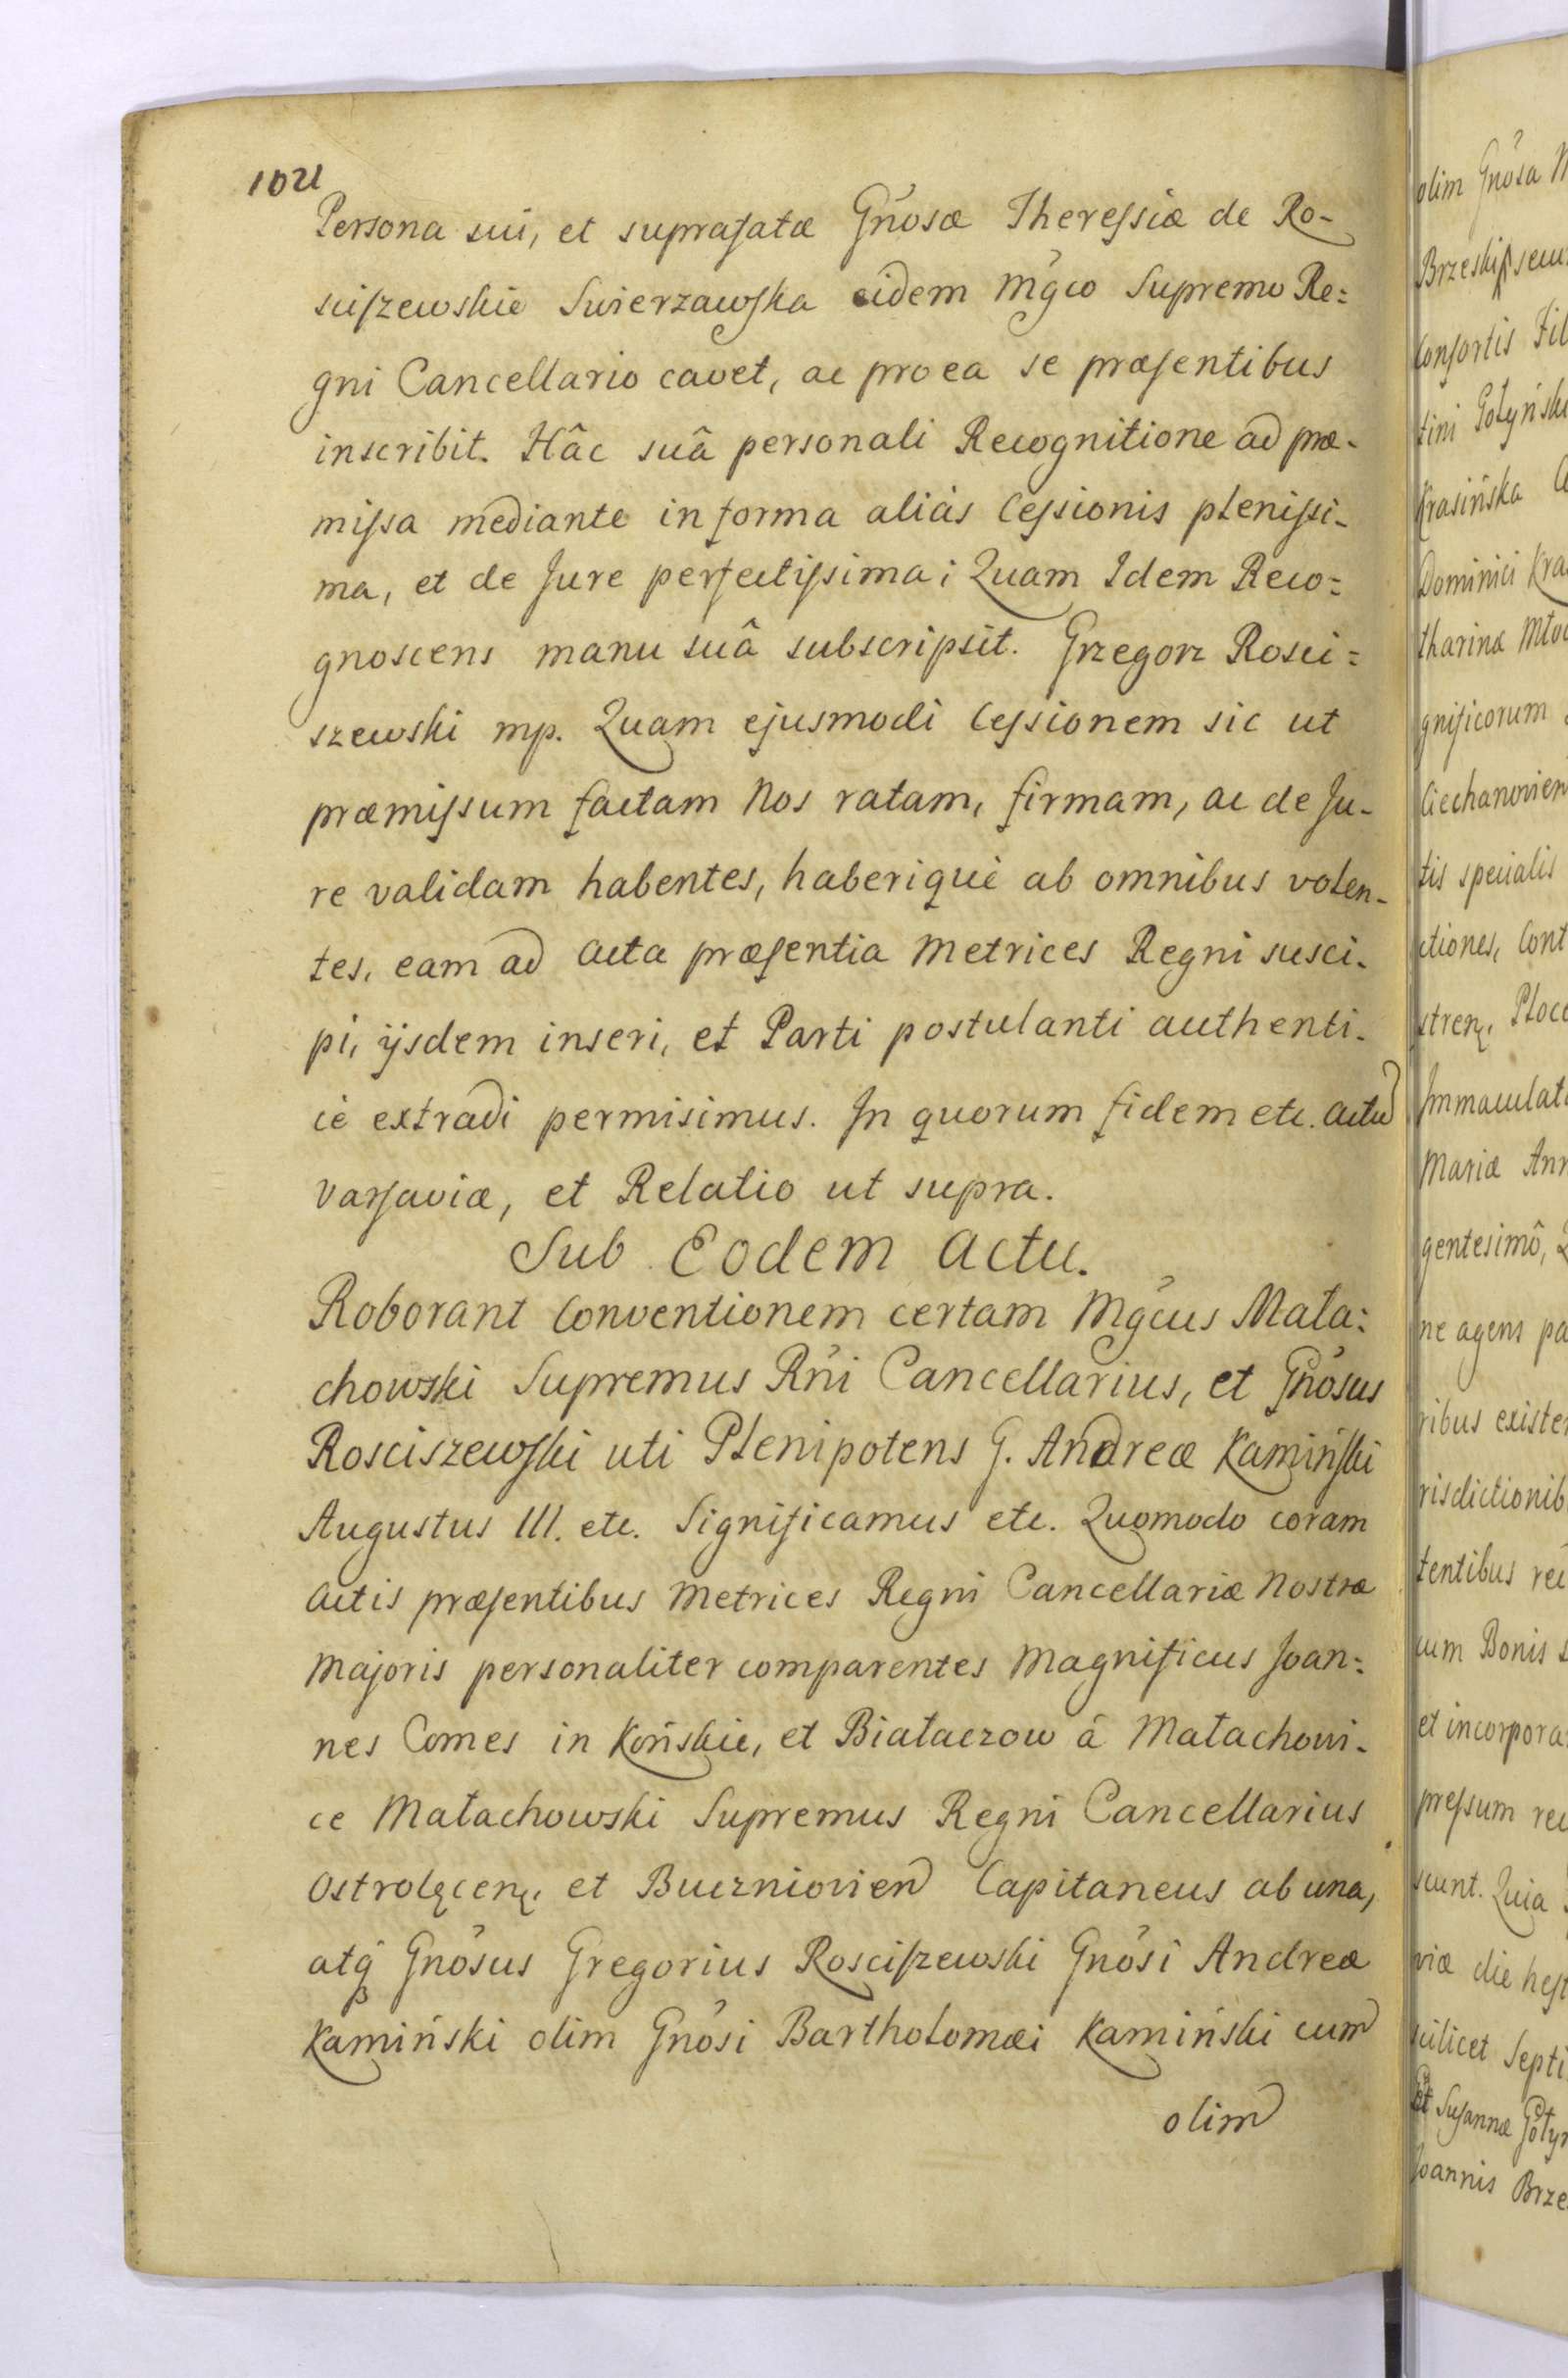 1021
Persona sui, et suprafatæ Gnôsæ Theressiæ de Ro-
sciszewskie Swierzawska eidem Mgco Supremo Re=
gni Cancellario cavet, ac pro ea se præsentibus
inscribit. Hâc suâ personali Recognitione ad præ-
missa mediante in forma aliàs Cessionis plenissi-
ma, et de Jure perfectissima; Quam Idem Reco=
gnoscens manu suâ subscripsit. Grzegorz Rosci=
szewski mp. Quam ejusmodi Cessionem sic ut
præmissum factam Nos ratam, firmam, ac de Ju-
re validam habentes, haberiquè ab omnibus volen-
tes, eam ad Acta præsentia Metrices Regni susci-
pi, ijsdem inseri, et Parti postulanti authenti-
cè extradi permisimus. In quorum fidem etc. Actu
Varsaviæ, et Relatio ut supra.
Sub Eodem Actu.
Roborant Conventionem certam Mgcus Mała=
chowski Supremus Rni Cancellarius, et Gnosus
Rosciszewski uti Plenipotens G. Andreæ Kamiński
Augustus III. etc. Significamus etc. Quomodo coram
Actis præsentibus Metrices Regni Cancellariæ Nostræ
Majoris personaliter comparentes Magnificus Joan=
nes Comes in Końskie, et Białaczow â Małachowi-
ce Małachowski Supremus Regni Cancellarius
Ostrolęcen. et Buczniovien Capitaneus ab una,
atq Gnosus Gregorius Rosciszewski Gnosi Andreæ
Kamiński olim Gnosi Bartholomæi Kamiński cum
olim
olim Gnosa
Brzeski
Consortis
tini Gołyńsk
Krasińska
Dominici Kra
tharina
gnificorum
Ciechanovien
tis specialis
ctiones, Cont
stren. Ploc
Immaculat
Mariæ Ann
gentesimô,
ne agens pa
ribus existen
risdictionib
tentibus
cum Bonis
et incorpora
pressum rec
scunt. Quia
viæ die hest
scilicet Septi
et Susannæ Gołyn
Joannis Brze